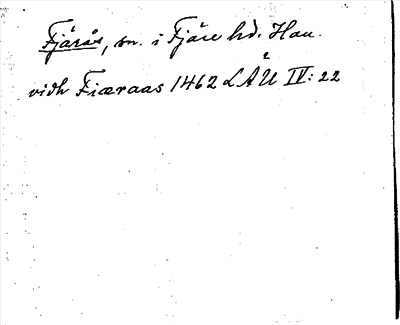 Fjärås, sn. i Fjäre hd. Hall.
vidh Fiæraas 1462 LÅU IV: 22